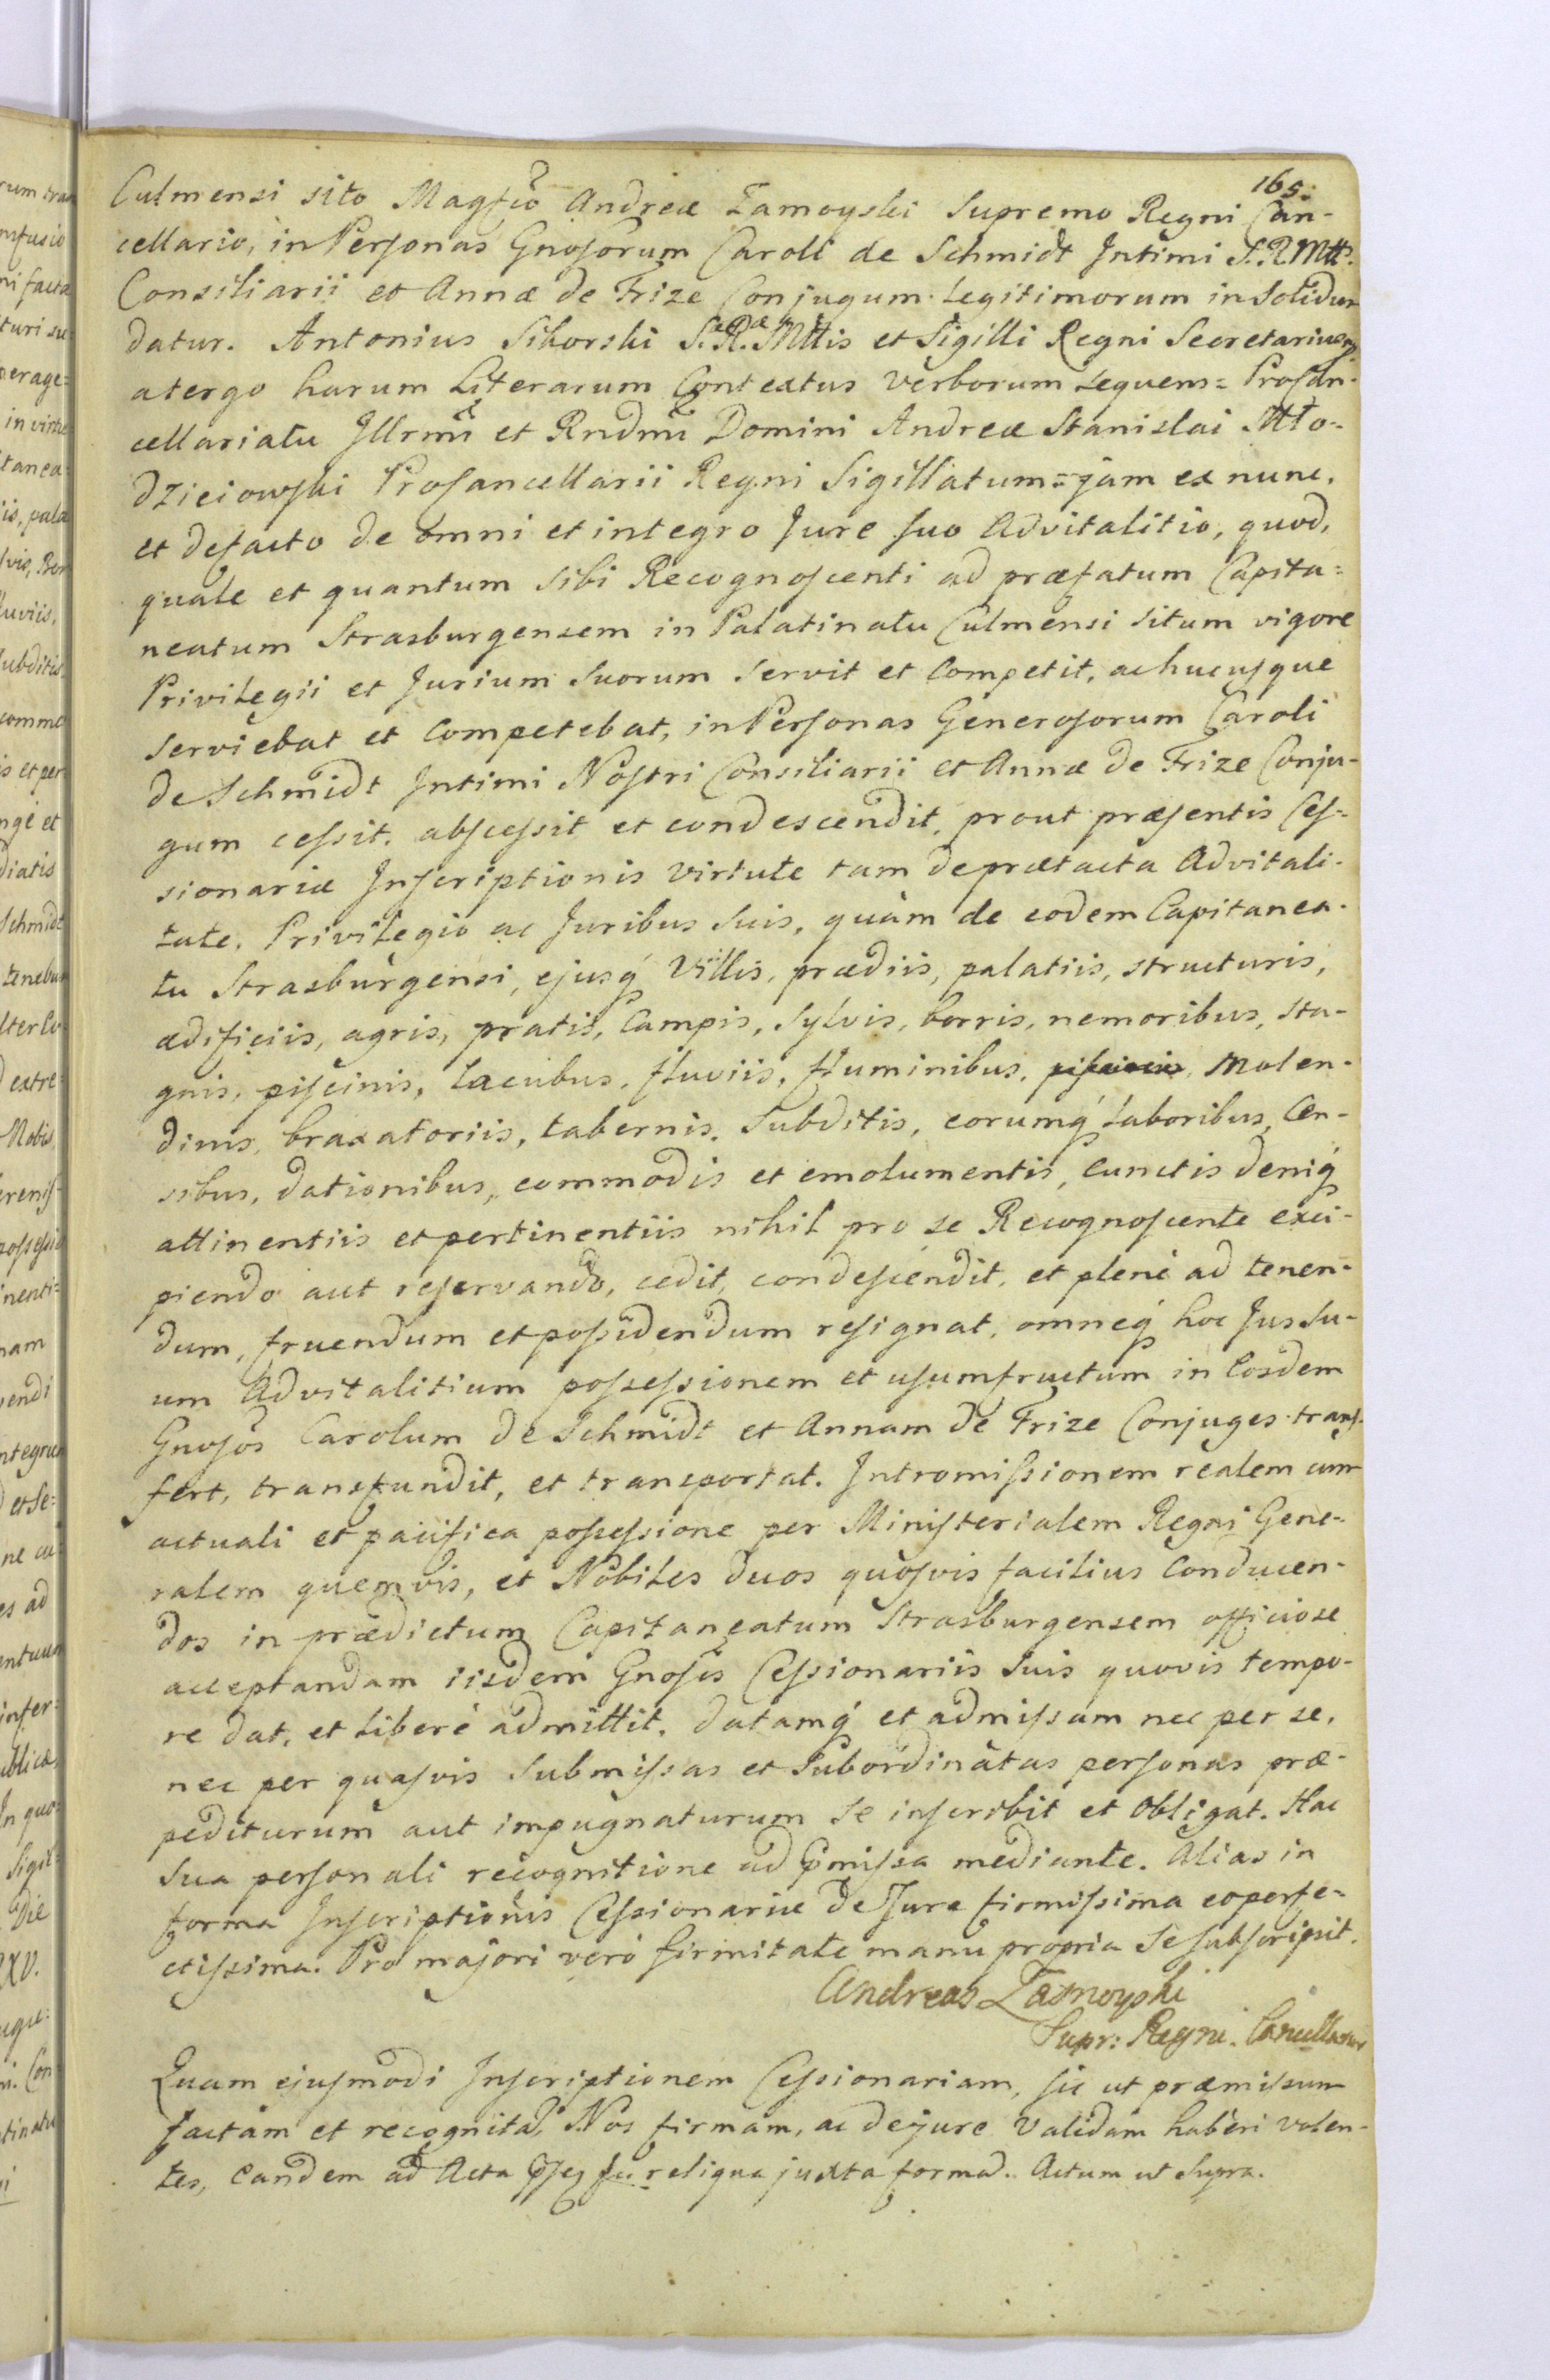 165.
Culmensi sito Magfco Andreæ Zamoyski Supremo Regni Can-
cellario, in Personas Gnosorum Caroli de Schmidt Intimi S. R. Mtt.
Consiliarii et Annæ de Frize Conjugum Legitimorum in Solidum
datur. Antonius Sikorski S. R. Mttis et Sigilli Regni Secretarius mp
a tergo harum Literarum Contextus verborum sequens = Procan-
cellariatu Illrmi et Rndmi Domini Andreæ Stanislai Mło-
dzieiowski Procancellarii Regni Sigillatum = jam ex nunc,
et defacto de omni et integro Jure suo Advitalitio, quod,
quale et quantum sibi Recognoscenti ad præfatum Capita=
neatum Strasburgensem in Palatinatu Culmensi situm vigore
Privilegii et Jurium Suorum servit et Competit, ac hucusque
serviebat et Competebat, in Personas Generosorum Caroli
de Schmidt Intimi Nostri Consiliarii et Annæ de Frize Conju-
gum cessit, abscessit et condescendit, prout præsentis Ces=
sionariæ Inscriptionis virtute tam de prætacta Advitali-
tate, Privilegio ac Juribus Suis, quàm de eodem Capitanea-
tu Strasburgensi, ejusq Villis, prædiis, palatiis, structuris,
ædificiis, agris, pratis, Campis, Sylvis, borris, nemoribus, sta-
gnis, piscinis, Lacubus, fluviis, fluminibus, piscinis, Molen-
dinis, braxatoriis, tabernis, Subditis, eorumq Laboribus, Cen-
sibus, dationibus, commodis et emolumentis, Cunctis deniq
attinentiis et pertinentiis nihil pro se Recognoscente exci-
piendo aut reservando, cedit, condescendit, et plenè ad tenen-
dum, fruendum et possidendum resignat, omneq hoc Jus Su-
um Advitalitium possessionem et usumfructum in Eosdem
Gnosos Carolum de Schmidt et Annam de Frize Conjuges trans-
fert, transfundit, et transportat. Intromissionem realem cum
actuali et pacifica possessione per Ministerialem Regni Gene-
ralem quemvis, et Nobiles duos quosvis facilius Conducen-
dos in prædictum Capitaneatum Strasburgensem officiose
acceptandam iisdem Gnosis Cessionariis Suis quovis tempo-
re dat, et Liberè admittit, datamq et admissam nec per se,
nec per quasvis Submissas et Subordinatas personas præ-
pediturum aut impugnaturum se inscribit et Obligat. Hac
Sua personali recognitione ad pmissa mediante. Alias in
forma Inscriptionis Cessionariæ de Jure firmissima eoperfe-
ctissima. Pro majori verò firmitate manu propria se subscripsit.
Andreas Zamoyski
Supr: Regni. Cancellarius
Quam ejusmodi Inscriptionem Cessionariam, sic ut præmissum
factam et recognita, Nos firmam, ac de jure Validam haberi volen-
tes, Eandem ad Acta reliqua juxta forma. Actum ut Supra.